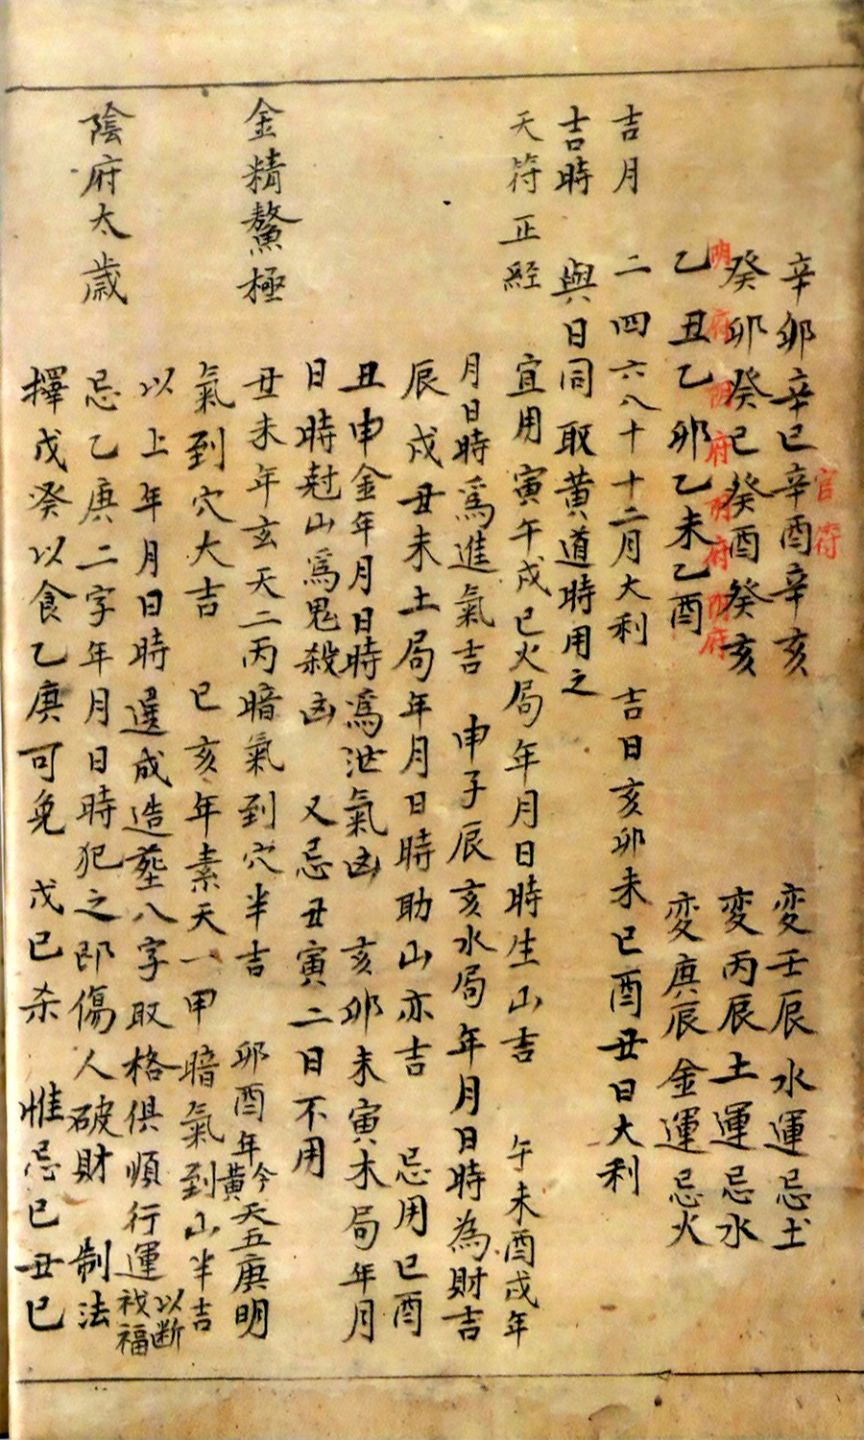 辛卯辛巳辛酉辛亥 変壬辰水運忌土
官符
癸卯癸巳癸酉癸亥 変丙辰土運忌水
陰府 陰府 陰府 陰府
乙丑乙卯乙未乙酉 変庚辰金運忌火
吉月 二四六八十十二月大利 吉日亥卯未巳酉丑日大利
吉時 與日同取黄道時用之
天符正経 宜用寅午戌巳火局年月日時生山吉 午未酉戌年
月日時為進氣吉 申子辰亥水局年月日時為財吉
辰戌丑未土局年月日時助山亦吉 忌用巳酉
丑申金年月日時爲泄氣凶 亥卯未寅木局年月
日時尅山爲鬼殺凶 又忌丑寅二日不用
金精鰲極 丑未年玄天二丙暗氣到穴半吉 卯酉年今黄天五庚明
氣到穴大吉 巳亥年素天一甲暗氣到山半吉
以上年月日時選成造塟八字取格俱順行運以断
禍福
陰府太歲 忌乙庚二字年月日時犯之即傷人破財 制法
擇戊癸以食乙庚可免 戊己杀 惟忌己丑己